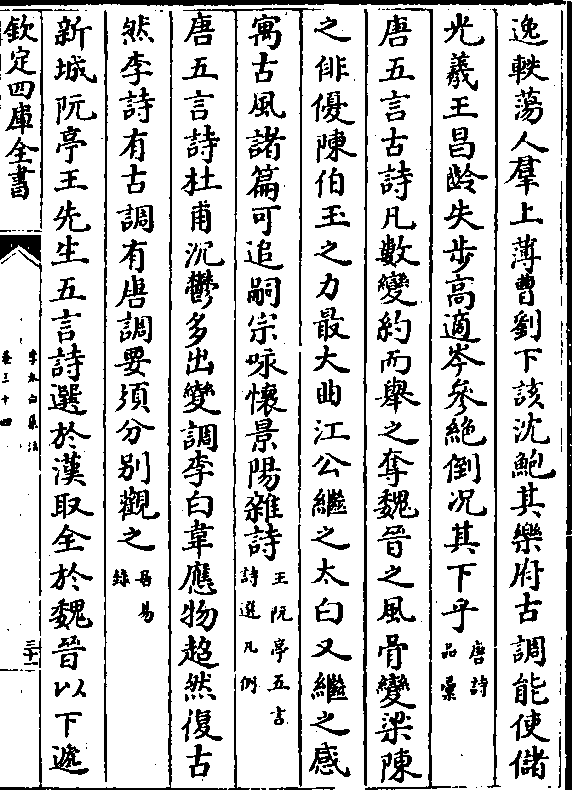 逸軼蕩人羣上薄曹劉下該沈鮑其樂府古調能使儲
光羲王昌齡失步高適岑參絶倒况其下乎唐詩品彙
唐五言古詩凡數變約而舉之奪魏晉之風骨變梁陳
之俳優陳伯玉之力最大曲江公繼之太白又繼之感
寓古風諸篇可追嗣宗咏懷景陽雜詩王阮亭五言詩選凡例
唐五言詩杜甫沉鬱多出變調李白韋應物超然復古
然李詩有古調有唐調要須分别觀之居易録
新城阮亭王先生五言詩選於漢取全於魏晉以下遞
欽定四庫全書
李太白集注
卷三十四
三十二